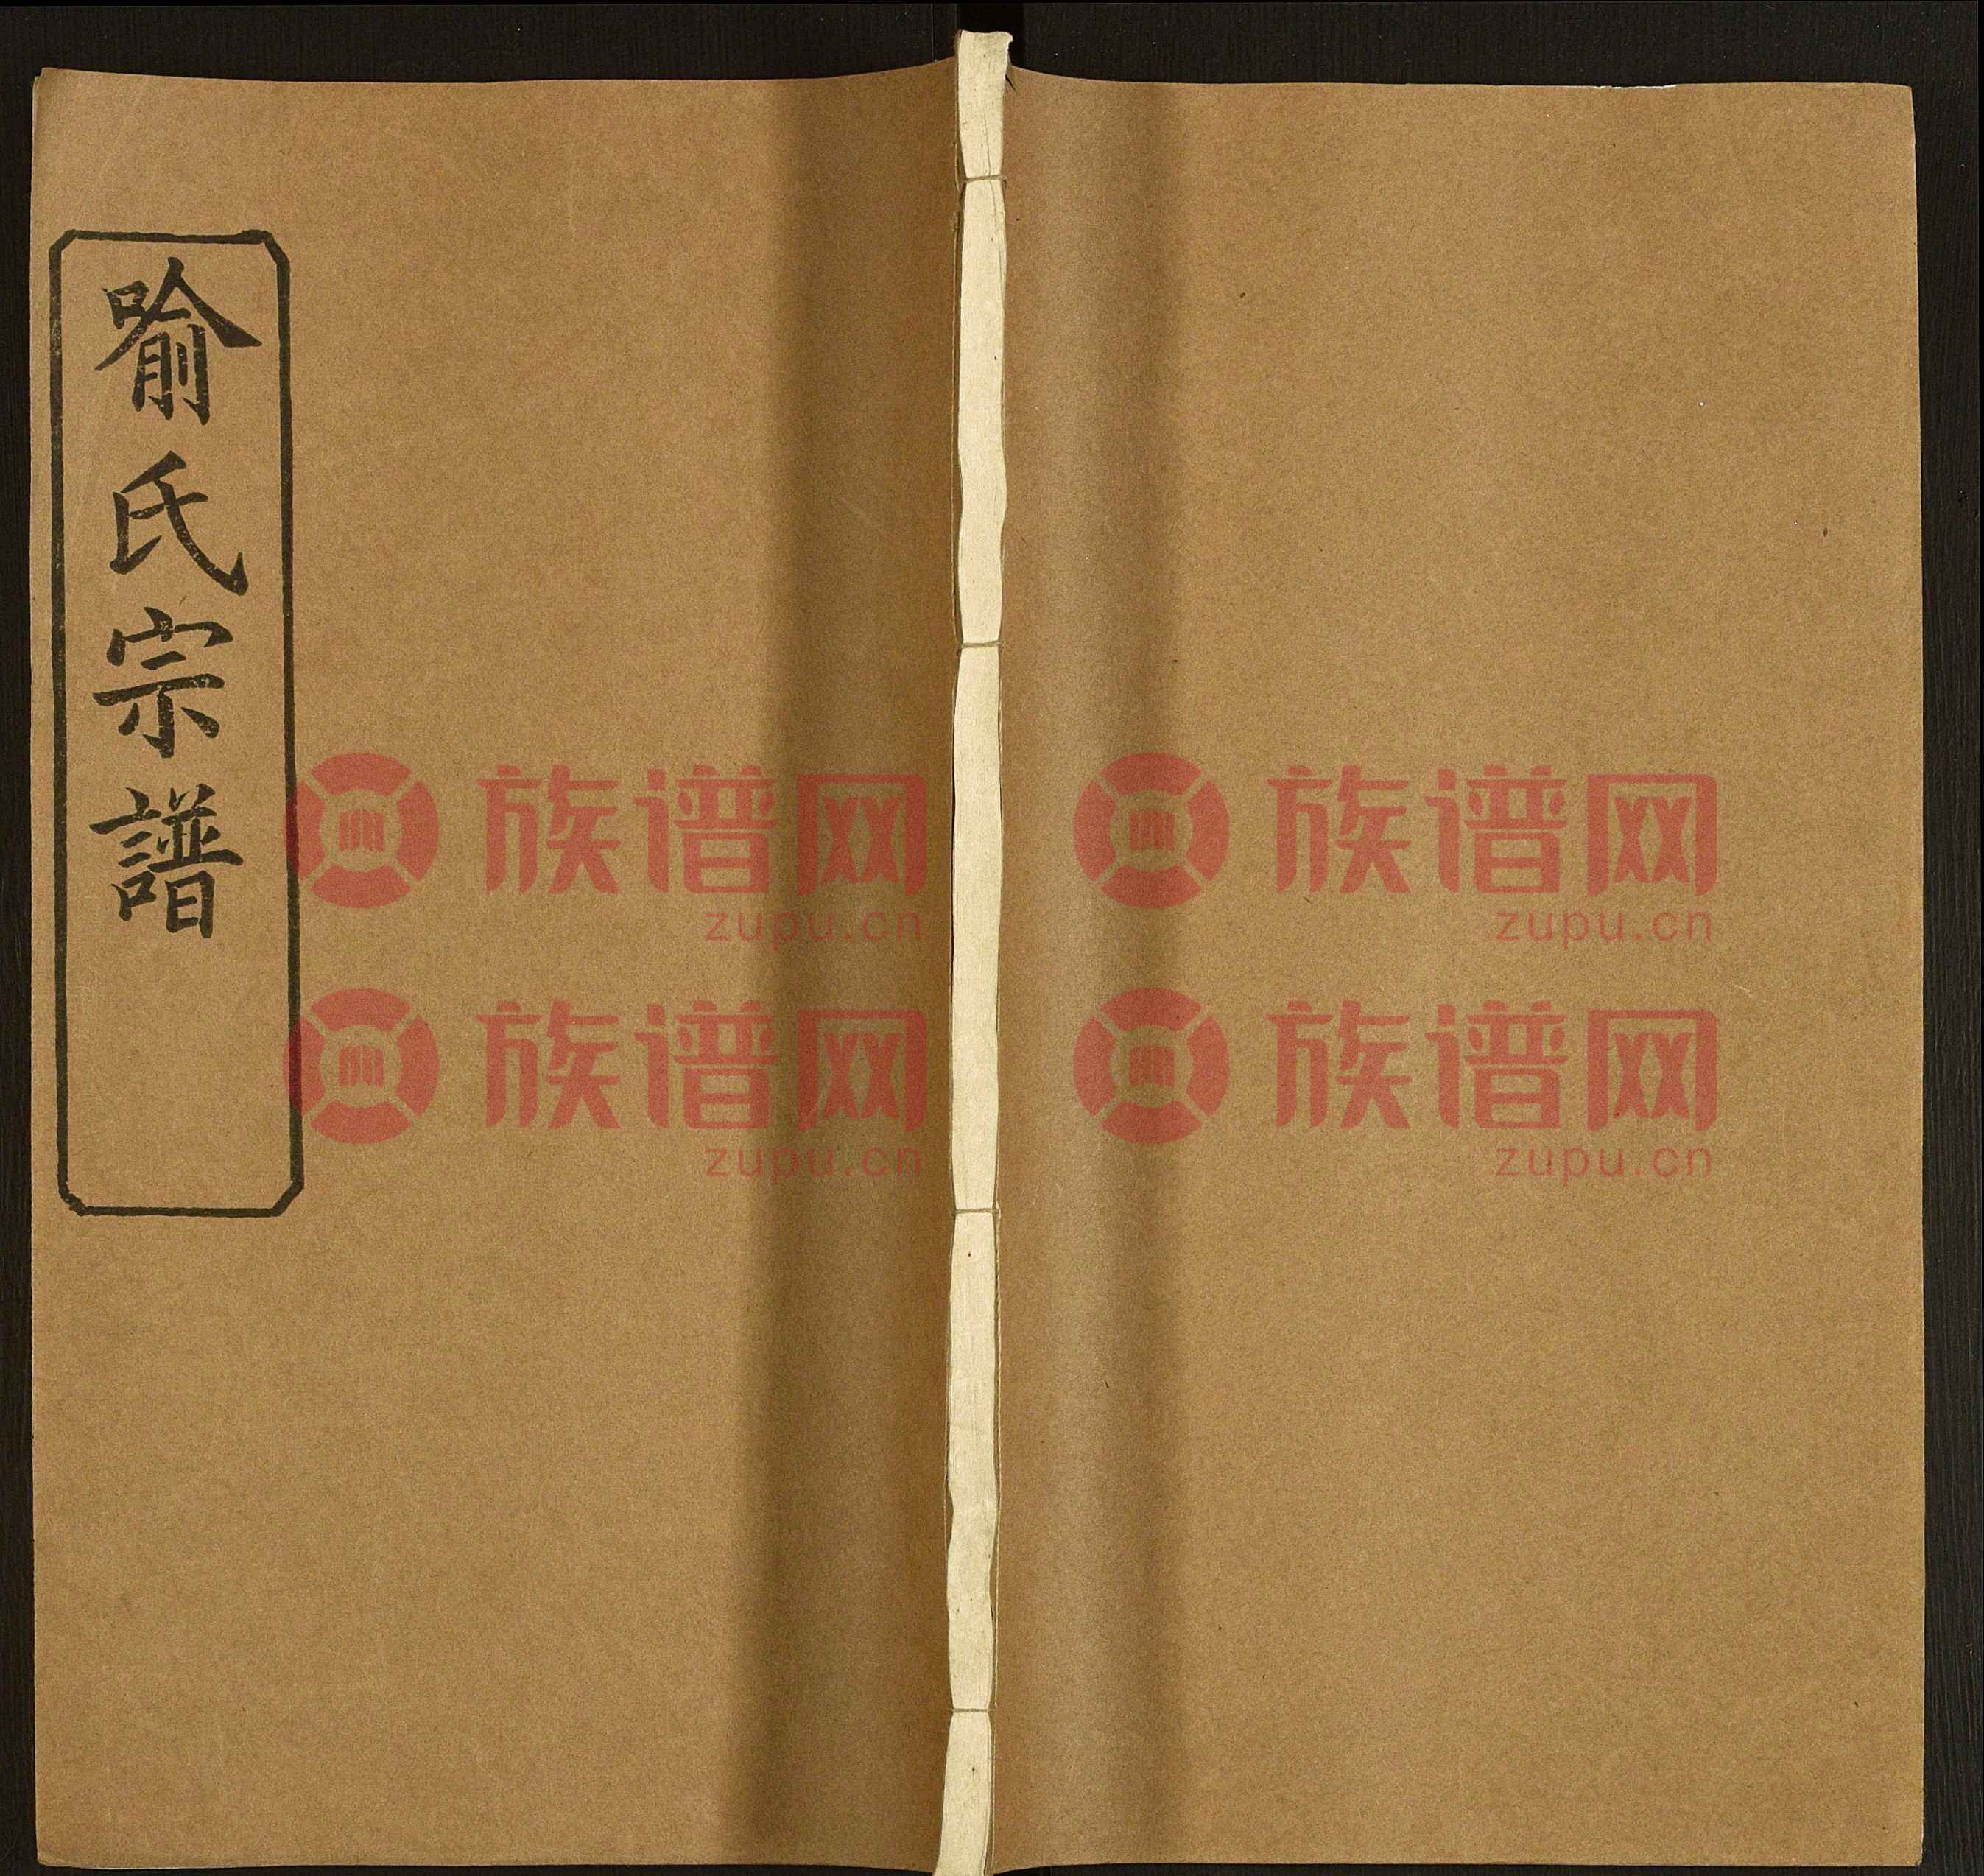 喻氏宗譜
族谱网
zupu.cn
族谱网
zupu.cn
族谱网
zupu.cn
族谱网
zupu.cn